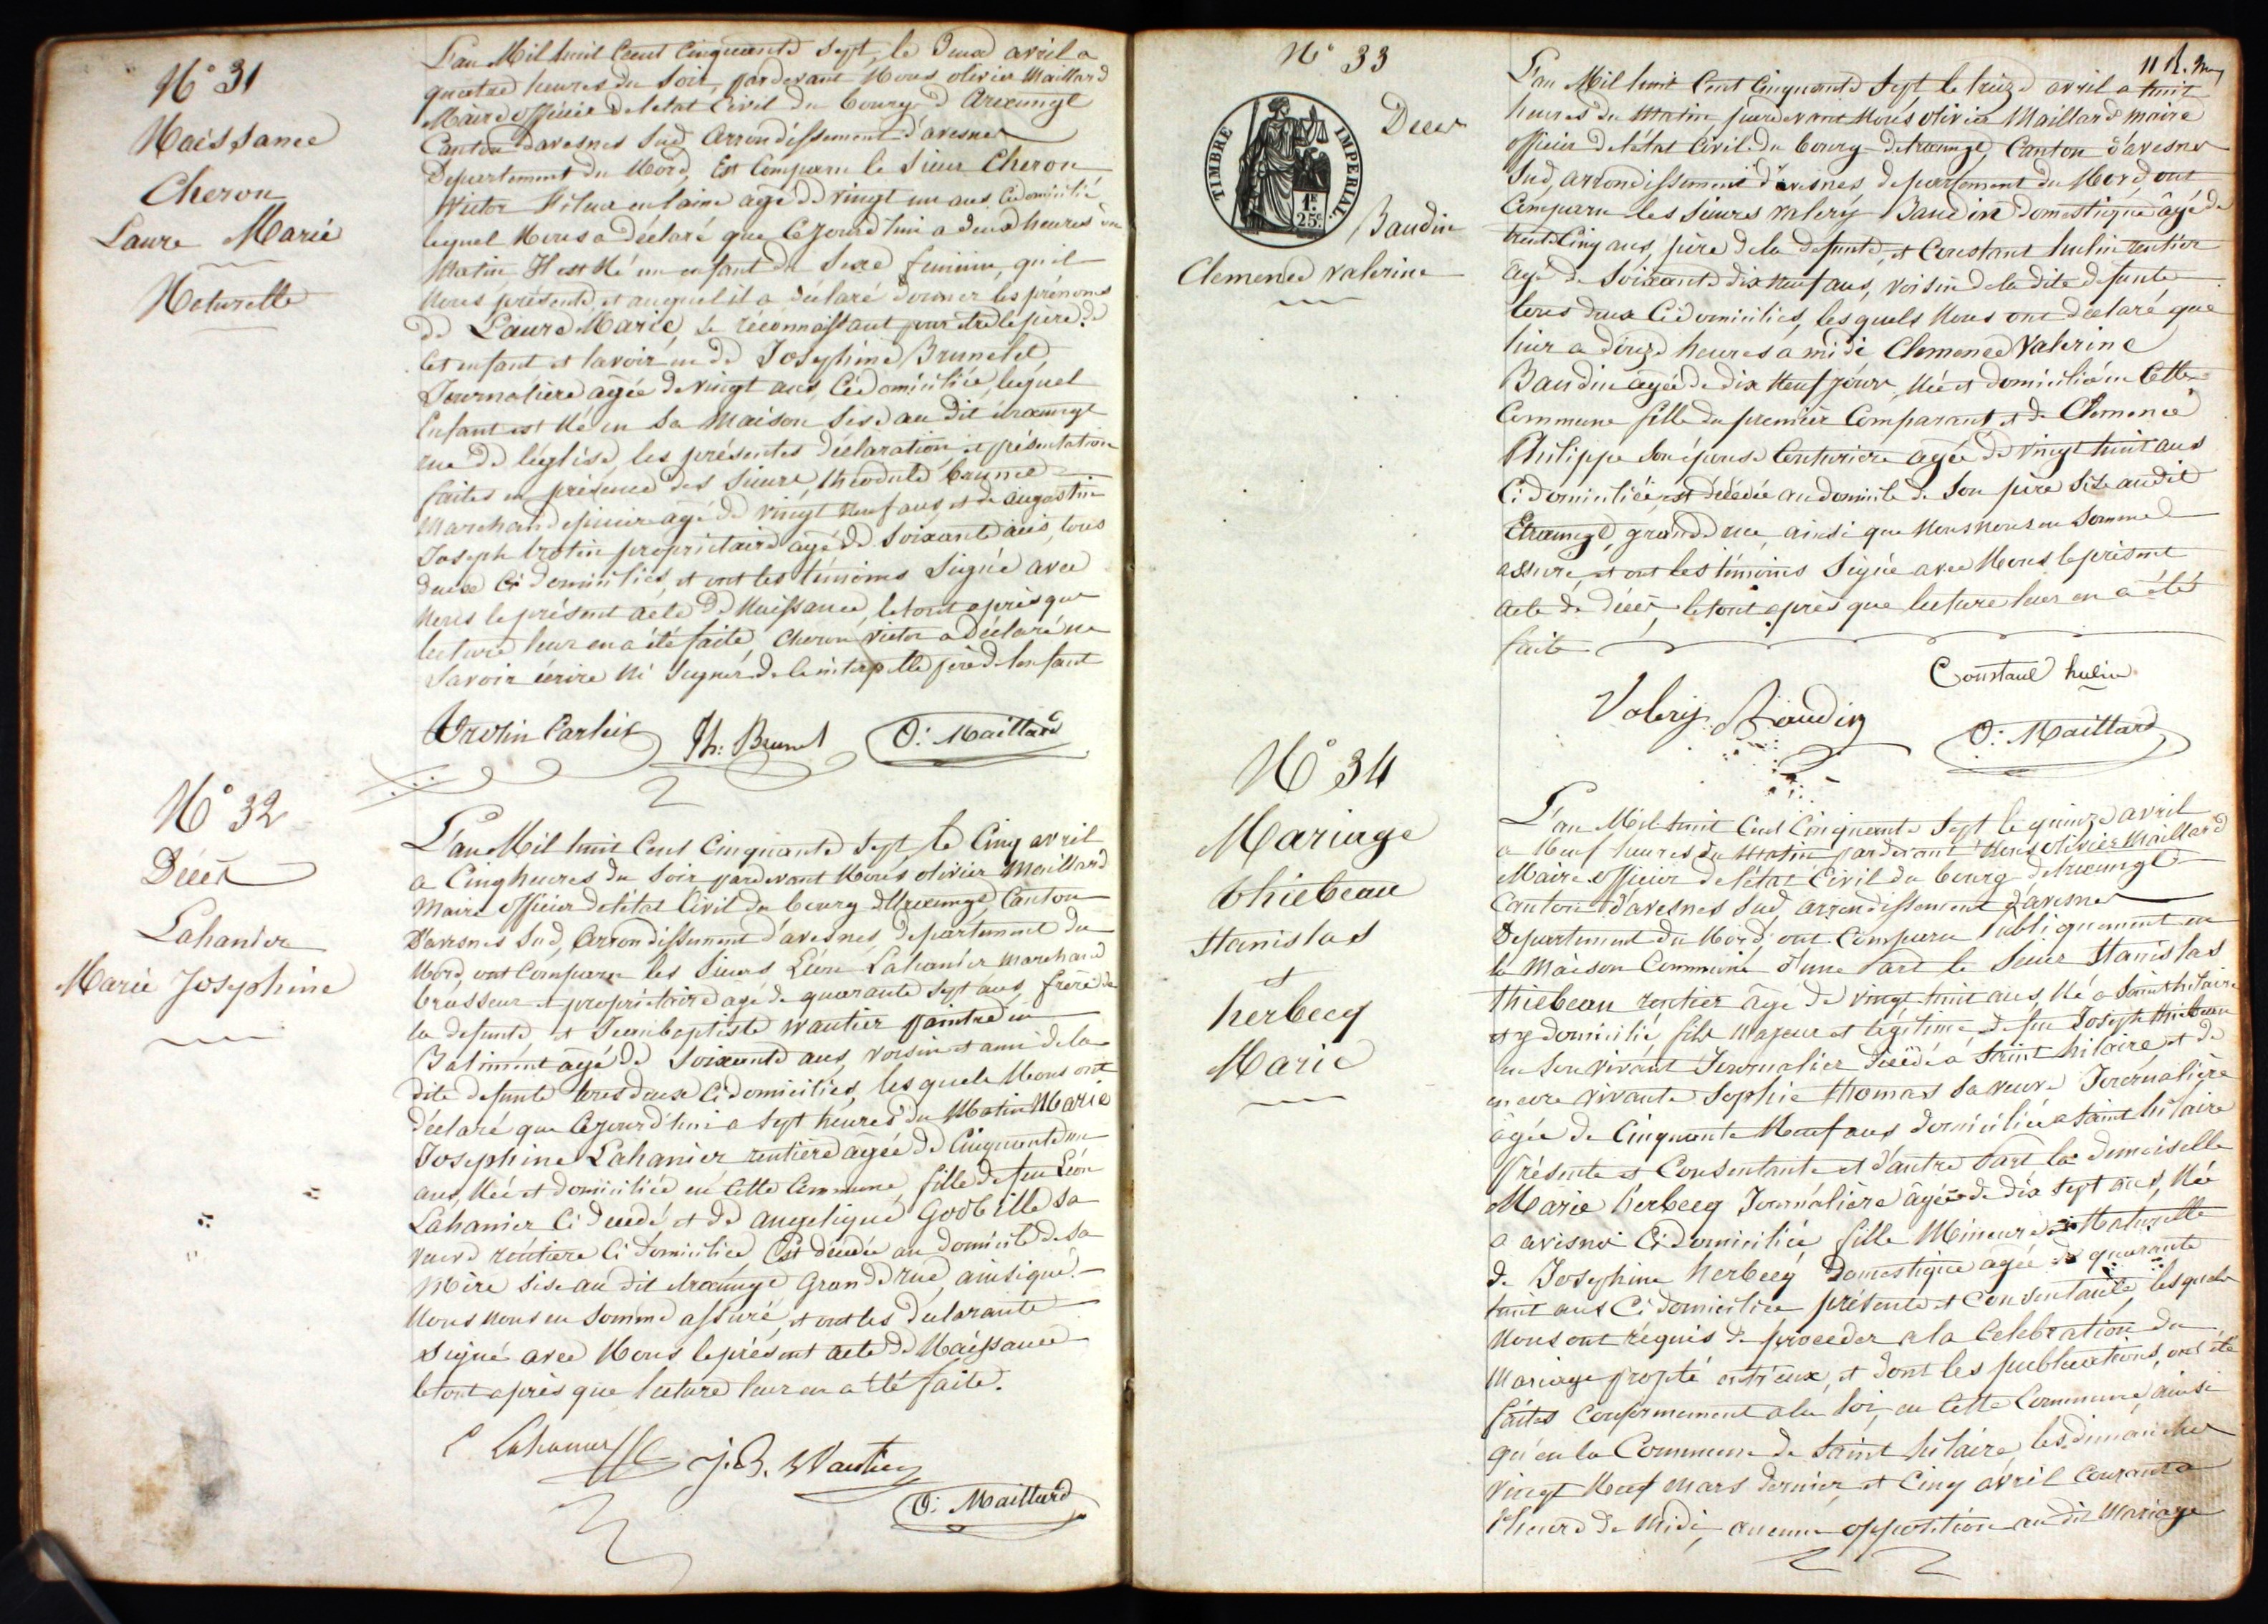 N° 31
Naissance
Cheron
Laure Marie
Naturelle
L'an Mil huit Cent Cinquante Sept, le Deux avril a
quatre heures du Soir, pardevant Nous olivier Maillard
Maire officier de letat Civil du bourg d'
Canton davesnes Sud Arrondissement d'avesnes
Departement du Nord, Est Comparu le Sieur Cheron
Victor fileur en laine agé de vingt un ans Ci domicilié
lequel Nous a déclaré que Cejourd'hui a deux heures du
Matin Il est Né un enfant du Sexe feminin, qu'il
Nous présente, et auquel il a déclaré donner les prénoms
de Laure Marie, se réconnaissant pour etre le père de
Cet enfant et lavoir eu de Joséphine Brunelet,
Journaliere agée de vingt ans, Ci domiciliée, lequel
Enfant est Né en Sa Maison Sise au dit étrœungt
rue de l'église, les présentes déclaration et présentation
faites en présence des Sieurs, théodule brunet
Marchand epicier agé de vingt Neuf ans, et de augustin
Joseph protin propriétaire agé de Soixante ans, tous
deux Ci domiciliés, et ont les témoins Signé avec
Nous le présent acte de Naissance, le tout après que
lecture leur en a été faite, Cheron Victor a déclaré ne
Savoir écrire Ni Signer de ce interpellé père de lenfant
Th: Brunet O: Maillard
N° 32
Décès
Lahanier
Marie Josephine
L'an Mil huit Cent Cinquante Sept le Cinq avril
a Cinq heures du Soir pardevant Nous olivier Maillard
Maire officier de létat Civil du bourg d'Etrœungt, Canton
D'avesnes Sud, Arrondissement d'avesnes, departement du
Nord, ont Comparu les Sieurs Léon Lahanier Marchand
brasseur et propriétaire agé de quarante Sept ans, frère de
la defunte, et Jeanbaptiste Wautier peintre en
Batiment agé de Soixante ans, voisin et ami de la
dite defunte tous deux Ci domiciliés, les quels Nous ont
déclaré que Cejourd'hui a Sept heures du Matin Marie
Josephine Lahanier rentière agée de Cinquante un
ans, Née et domiciliée en Cette Commune, fille de feu Léon
Lahanier Ci decedé et de angelique Godbille Sa
veuve rentiere Ci domiciliée, Est décédée au domicile de Sa
Mère Sise au dit etrœungt Grande rue, ainsi que
Nous Nous en Somme assuré, et ont les déclarants
Signé avec Nous le présent acte de Naissance
le tout après que lecture leur en a été faite.
J. B. Wautier
O: Maillard
N° 33
Décès
TIMBRE IMPERIAL
1F.
25c.
Baudin
Clemence Valerine
11
L'an Mil huit Cent Cinquante Sept le treize avril a huit
heures du Matin, pardevant Nous olivier Maillard maire
officier de létat Civil du bourg detrœungt, Canton d'avesnes
Sud, arrondissement d'avesnes departement du Nord, ont
Comparu les Sieurs valery Baudin domestique âgé de
trente Cinq ans, père de la defunte, et Constant hulin rentier
agé de Soixante dix Neuf ans, voisin de la dite defunte
tous deux Ci domiciliés, les quels Nous ont déclaré que
hier a douze heures a midi Clemence Valerine
Baudin agée de dix Neuf jours, Née et domiciliée en Cette
Commune fille du premier Comparant et de Clemence
Philippe Son épouse Couturiere agée de vingt huit ans
Ci domiciliée, est décédée au domicile de Son père Sise au dit
Etrœungt, grande rue, ainsi que Nous nous en Somme
assuré, et ont les témoins Signé avec Nous le présent
acte de décès, le tout après que lecture leur en a étés
faite
Constant hulin
Valery Baudin
O: Maillard
N° 34
Mariage
thiebeau
Stanislas
et
herbecq
Marie
L'an Mil huit Cent Cinquante Sept le quinze avril
a Neuf heures du Matin pardevant Nous olivier Maillard
Maire officier de létat Civil du bourg detrœungt
Canton d'avesnes Sud, arrondissement d'avesnes
Departement du Nord, ont Comparu Publiquement en
la Maison Commune d'une Part le Sieur Stanislas
thiebeau rentier âgé de vingt huit ans, Né a Saint hilaire
et y domicilié, fils Majeur et légitime de feu Joseph thiebeau
en Son vivant Journalier décédé a Saint hilaire et de
encore vivante Sophie thomas Sa veuve Journalière
âgée de Cinquante Neuf ans domiciliée a Saint hilaire
Présente et Consentante et d'autre Part la demoiselle
Marie herbecq Journalière âgée de dix Sept ans, Née
a avesnes Ci domiciliée fille Mineure et Naturelle
de Josephine herbecq Domestique agée de quarante
huit ans Ci domiciliée présente et Consentante, lesquels
Nous ont réquis de proceder a la Célébration du
Mariage projeté entr'eux, et dont les publications ont été
faites Conformement a la loi, en Cette Commune, ainsi
qu'en la Commune de Saint hilaire, les dimanches
vingt Neuf Mars dernier, et Cinq avril Courant a
l'heure de Midi, aucune opposition au dit Mariage